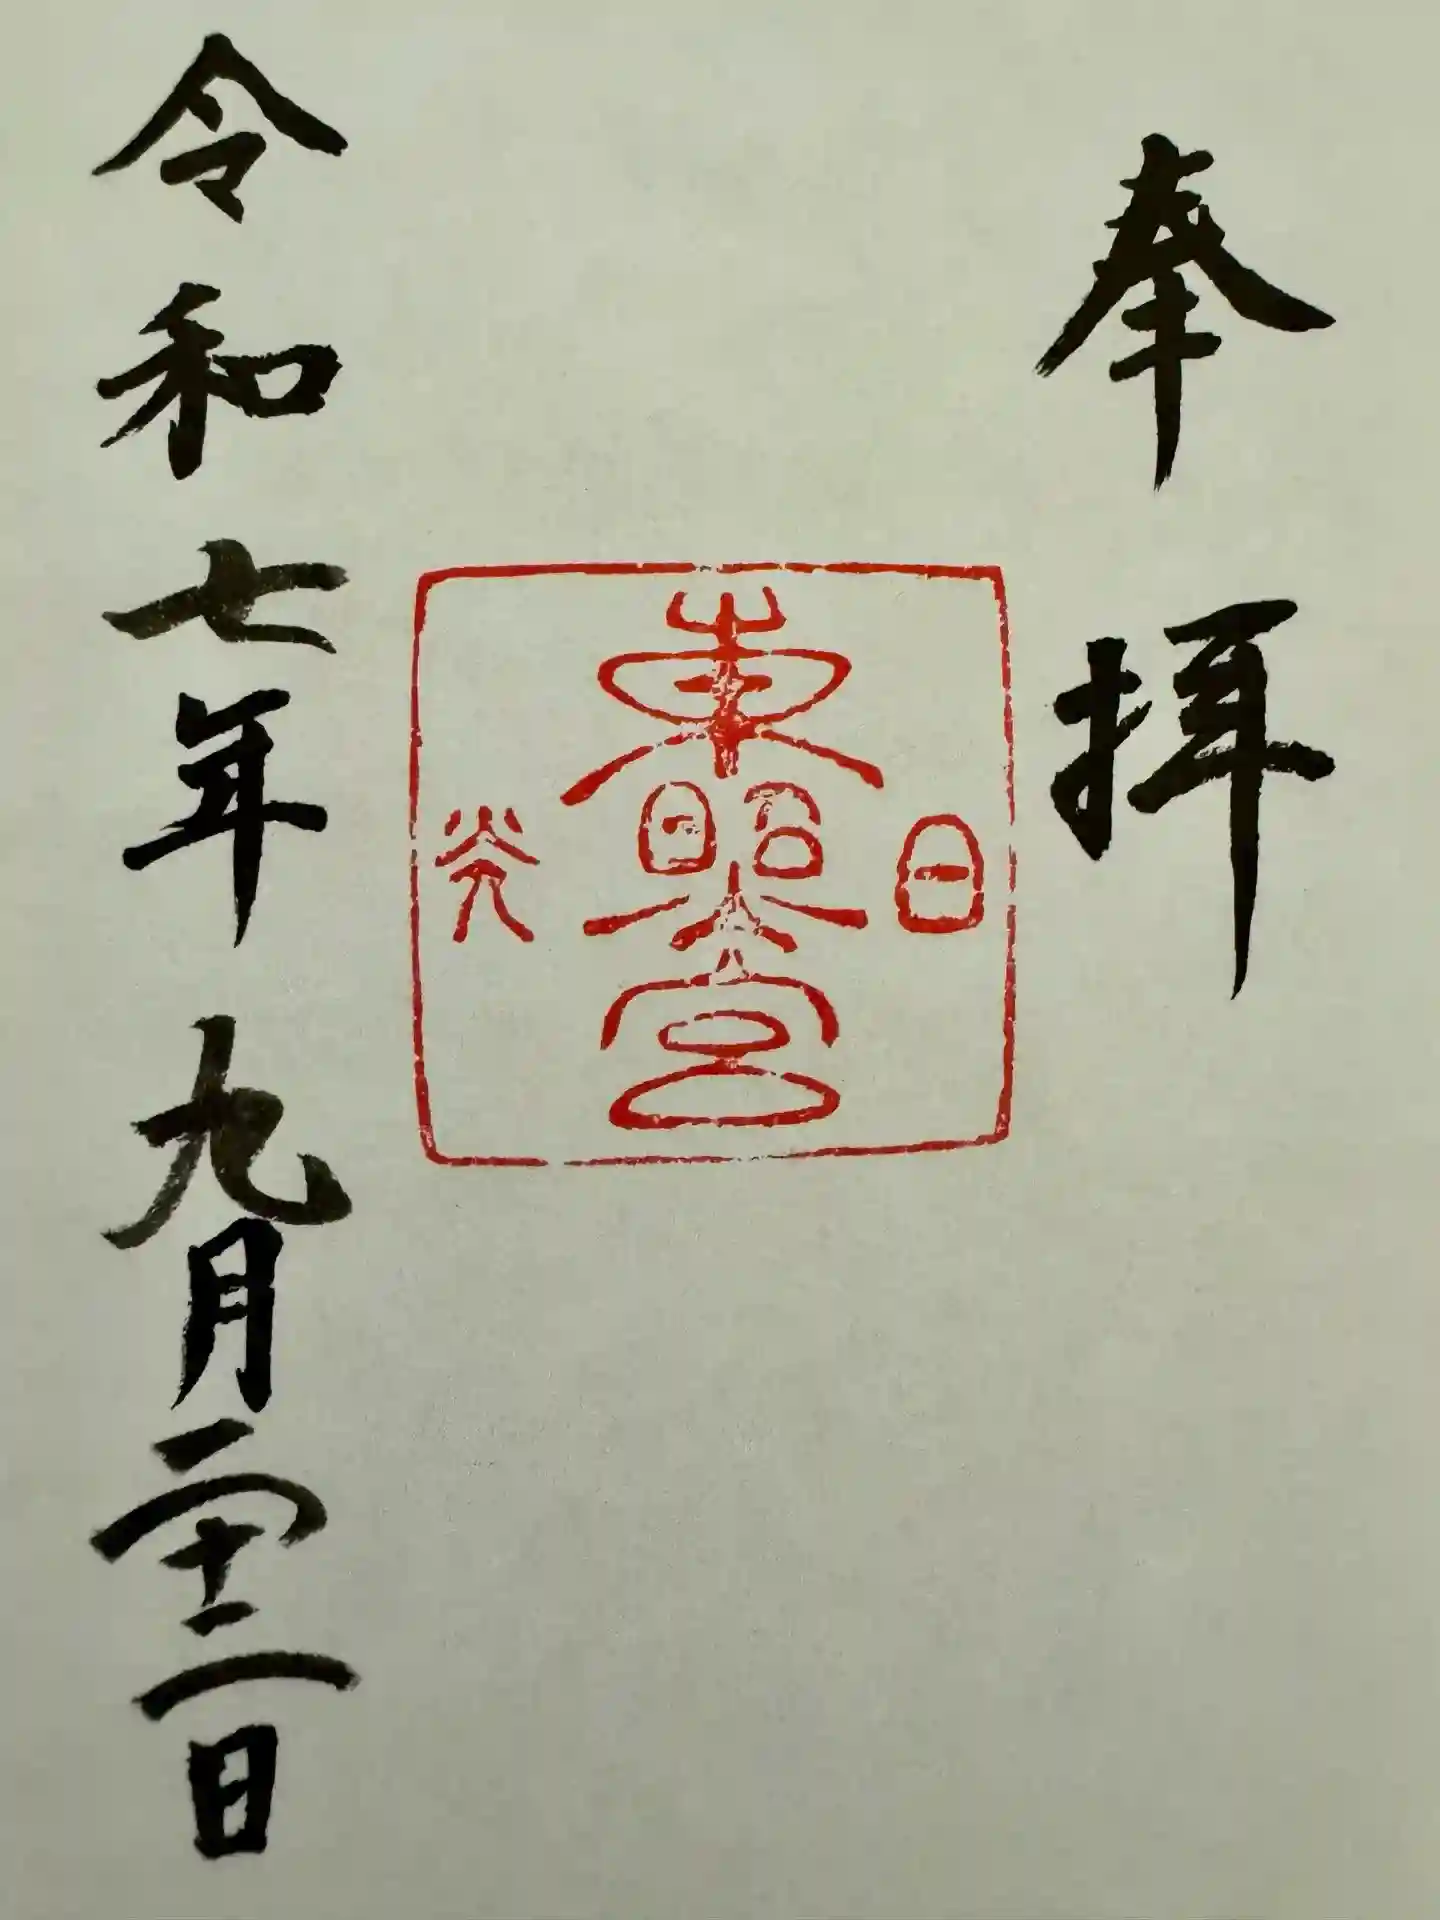 奉拝
日
東照宮
光
令和七年九月二十二日